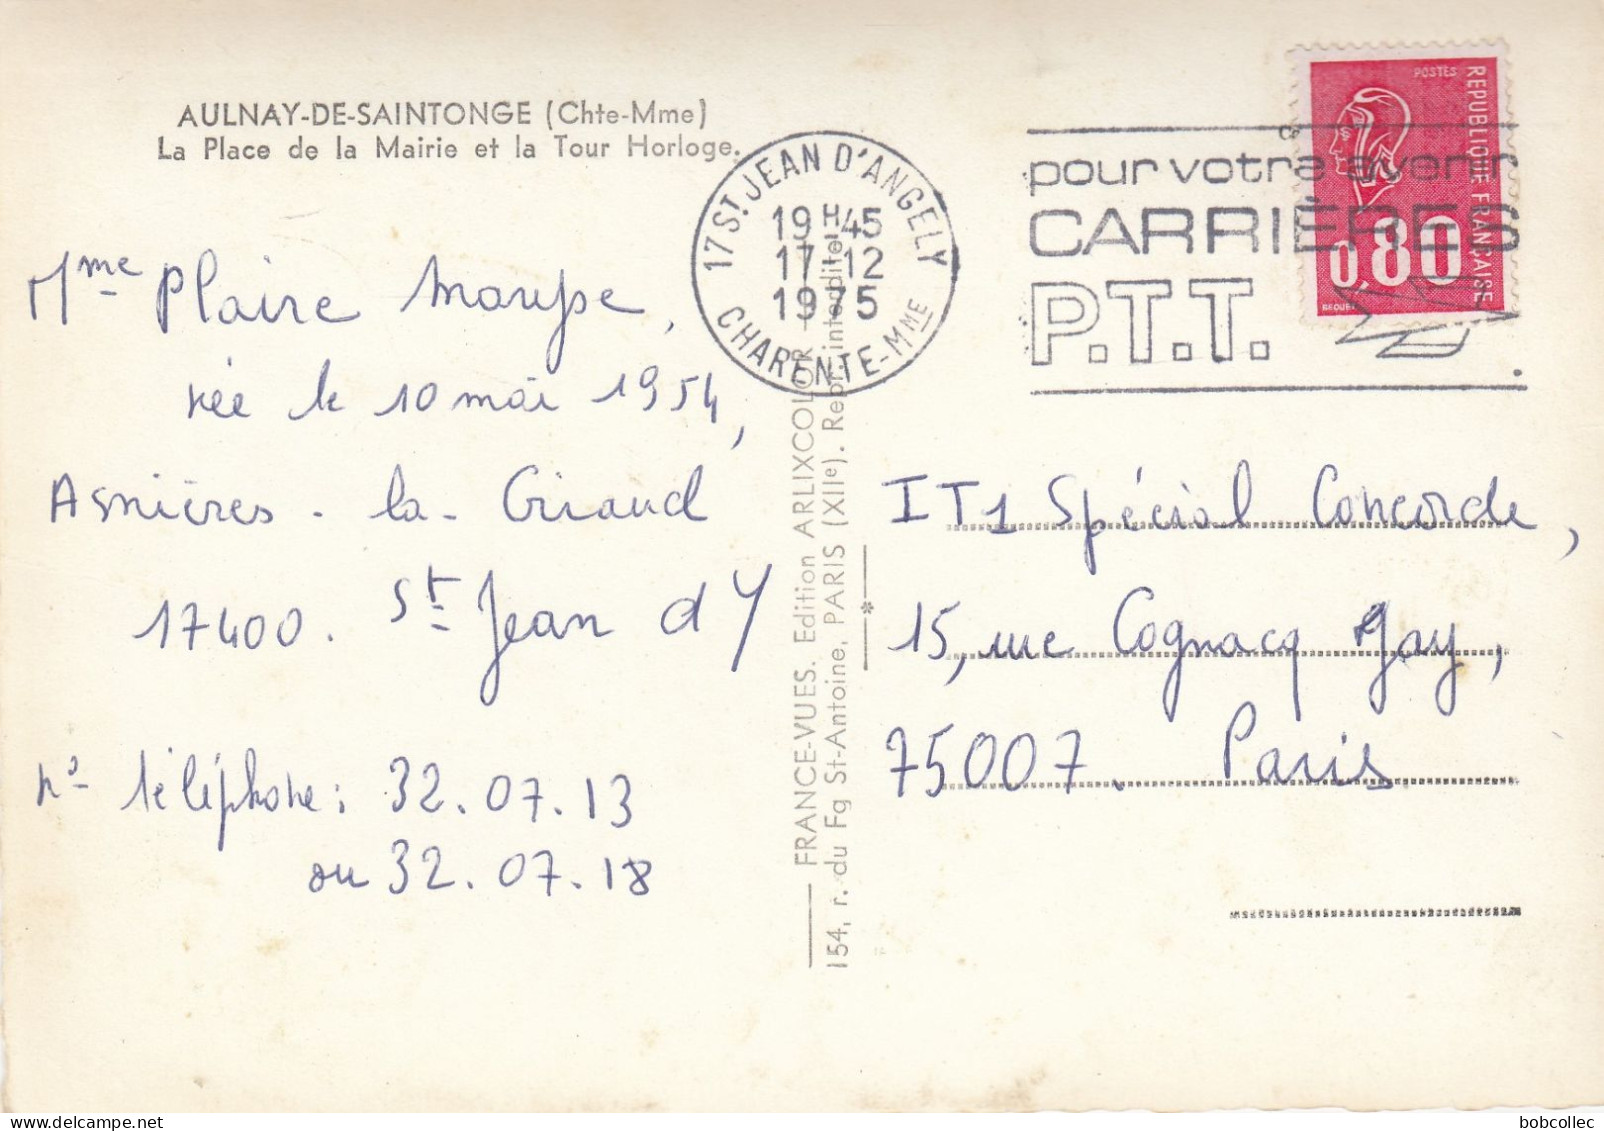 AULNAY-DE-SAINTONGE (Chte-Mme)
La Place de la Mairie et la Tour Horloge.
Mme Plaire Maryse,
née le 10 mai 1954,
Asnières - la - Giraud
17400. St Jean d Y
n° téléphone : 32.07.13
ou 32.07.18
17 ST. JEAN D'ANGELY
19H45
17-12
1975
CHARENTE-MME
pour votre avenir
CARRIÈRES
P.T.T.
POSTES
REPUBLIQUE FRANÇAISE
0,80
BEQUET
FRANCE-VUES. Edition ARLIXCOLOR
154, r. du Fg St-Antoine, PARIS (XIIe). Repr. interdite
IT1 Spécial Concorde,
15, rue Cognacq Jay,
75007. Paris
bobcollec